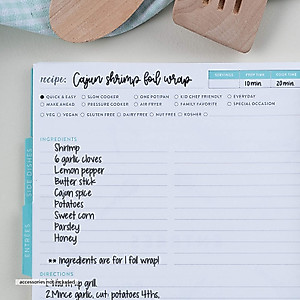 recipe: Cajun shrimp foil wrap
SERVINGS PREP TIME COOK TIME
10 min 20 min
QUICK & EASY SLOW COOKER ONE POT/PAN KID CHEF FRIENDLY EVERYDAY
MAKE AHEAD PRESSURE COOKER AIR FRYER FAMILY FAVORITE SPECIAL OCCASION
VEG VEGAN GLUTEN FREE DAIRY FREE NUT FREE KOSHER
INGREDIENTS
Shrimp
6 garlic cloves
Lemon pepper
Butter stick
Cajun spice
Potatoes
Sweet corn
Parsley
Honey
** Ingredients are for 1 foil wrap!
DIRECTIONS
grill.
2.Mince garlic, cut potatoes 4ths,
SIDE DISHES
ENTREES
accessories not included